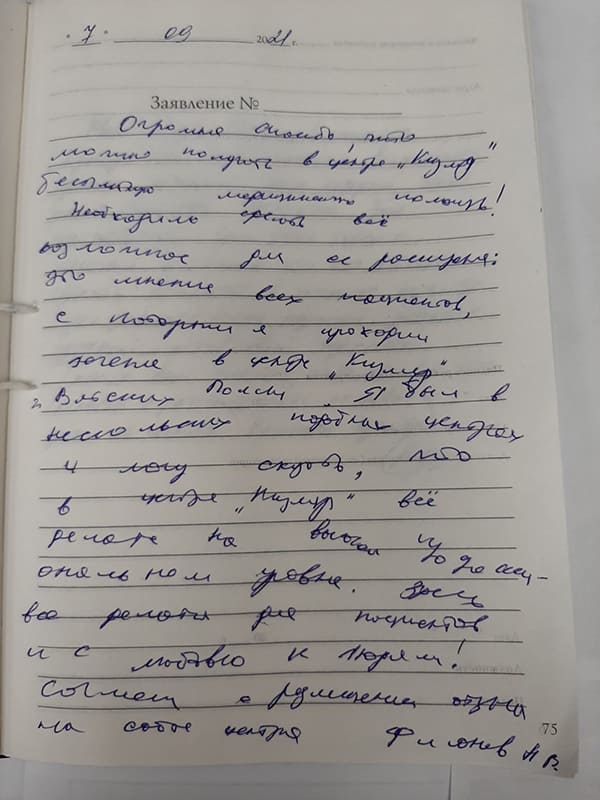 "7" 09 2021 г.
Заявление №
Огромное спасибо, что
можно получать в центре „Кизляр"
бесплатную медицинскую помощь!
Необходимо сделать всё
возможное для её расширения:
это мнение всех пациентов,
с которыми я проходил
лечение в центре
г. Вятских Полян. Я был в
нескольких подобных центрах
и могу сказать, что
в центре всё
делают на высоком профессии-
ональном уровне. Здесь
все делают для пациентов
и с любовью к людям!
Согласен с размещением отзыва
на сайте центра
75